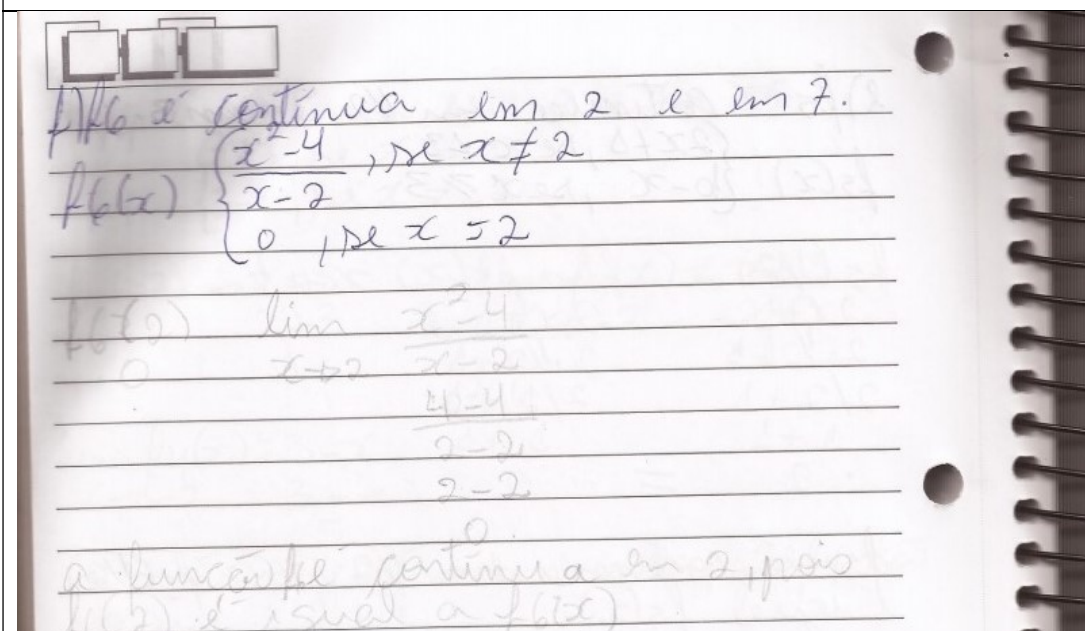 f) f6 é contínua em 2 e em 7.
f6(x) { x²-4 / x-2 , se x ≠ 2
0 , se x = 2
f6(2) lim x²-4 / x-2
0 x→2
4-4 / 2-2
2-2
0
a função f é contínua em 2, pois
f6(2) é igual a f6(x)